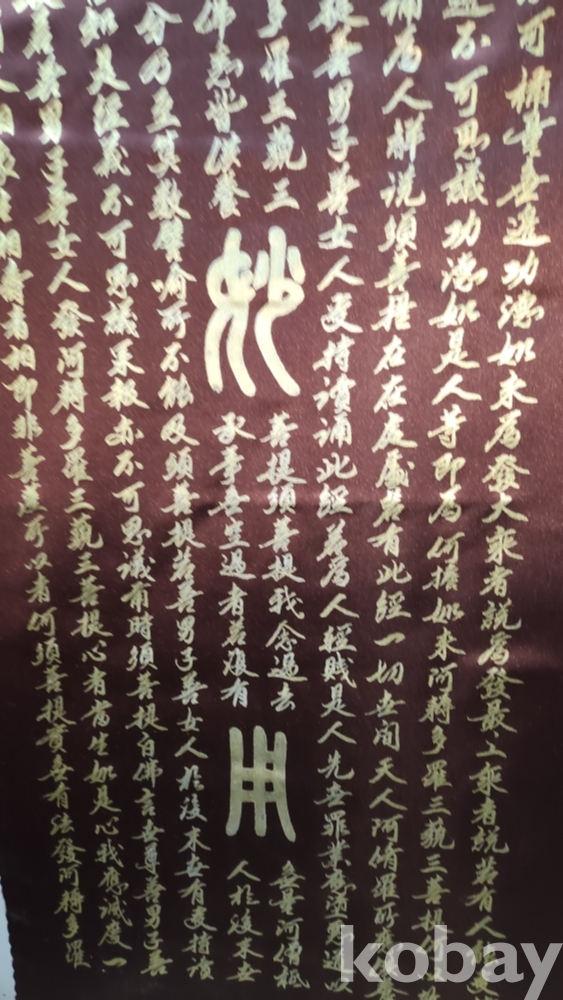 可稱量無邊功德如来為發大乘者說為發最上乘者說若有人
邊不可思議功德如是人等即為何擔如来阿耨多羅三藐三菩提
誦為人解說須菩提在在處處若有此經一切世間天人阿脩羅所
提善男子善女人受持讀誦此經若為人輕賤是人先世罪業應墮惡道以
多羅三藐三
佛悉皆供養
妙
菩提須菩提我念過去
承事無空過者若復有
用
無量阿僧祇
人於後末世
分乃至算數譬喻所不能及須菩提若善男子善女人於後末世有受持讀
知是經義不可思議果報亦不可思議爾時須菩提白佛言世尊善男子善
若善男子善女人發阿耨多羅三藐三菩提心者當生如是心我應滅度一
人相眾生相壽者相即非菩薩所以者何須菩提實無有法發阿耨多羅
kobay